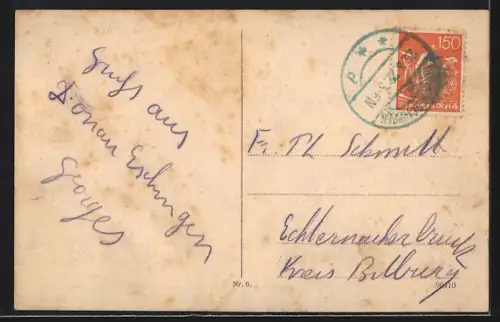 Gruss aus
Donau Eschingen
Georges
150
Deutsches Reich
P
Fr. Th Schmitt
Echternacherbrück
Kreis Bitburg
Nr. 9.